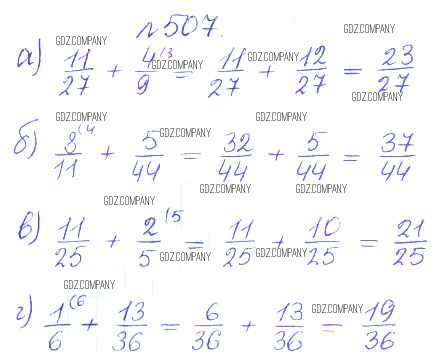 №507.
а) 11/27 + 4/9 (3 = 11/27 + 12/27 = 23/27
б) 8/11 (4 + 5/44 = 32/44 + 5/44 = 37/44
в) 11/25 + 2/5 (5 = 11/25 + 10/25 = 21/25
г) 1/6 (6 + 13/36 = 6/36 + 13/36 = 19/36
GDZCOMPANY
GDZCOMPANY
GDZCOMPANY
GDZCOMPANY
GDZCOMPANY
GDZCOMPANY
GDZCOMPANY
GDZCOMPANY
GDZCOMPANY
GDZCOMPANY
GDZCOMPANY
GDZCOMPANY
GDZCOMPANY
GDZCOMPANY